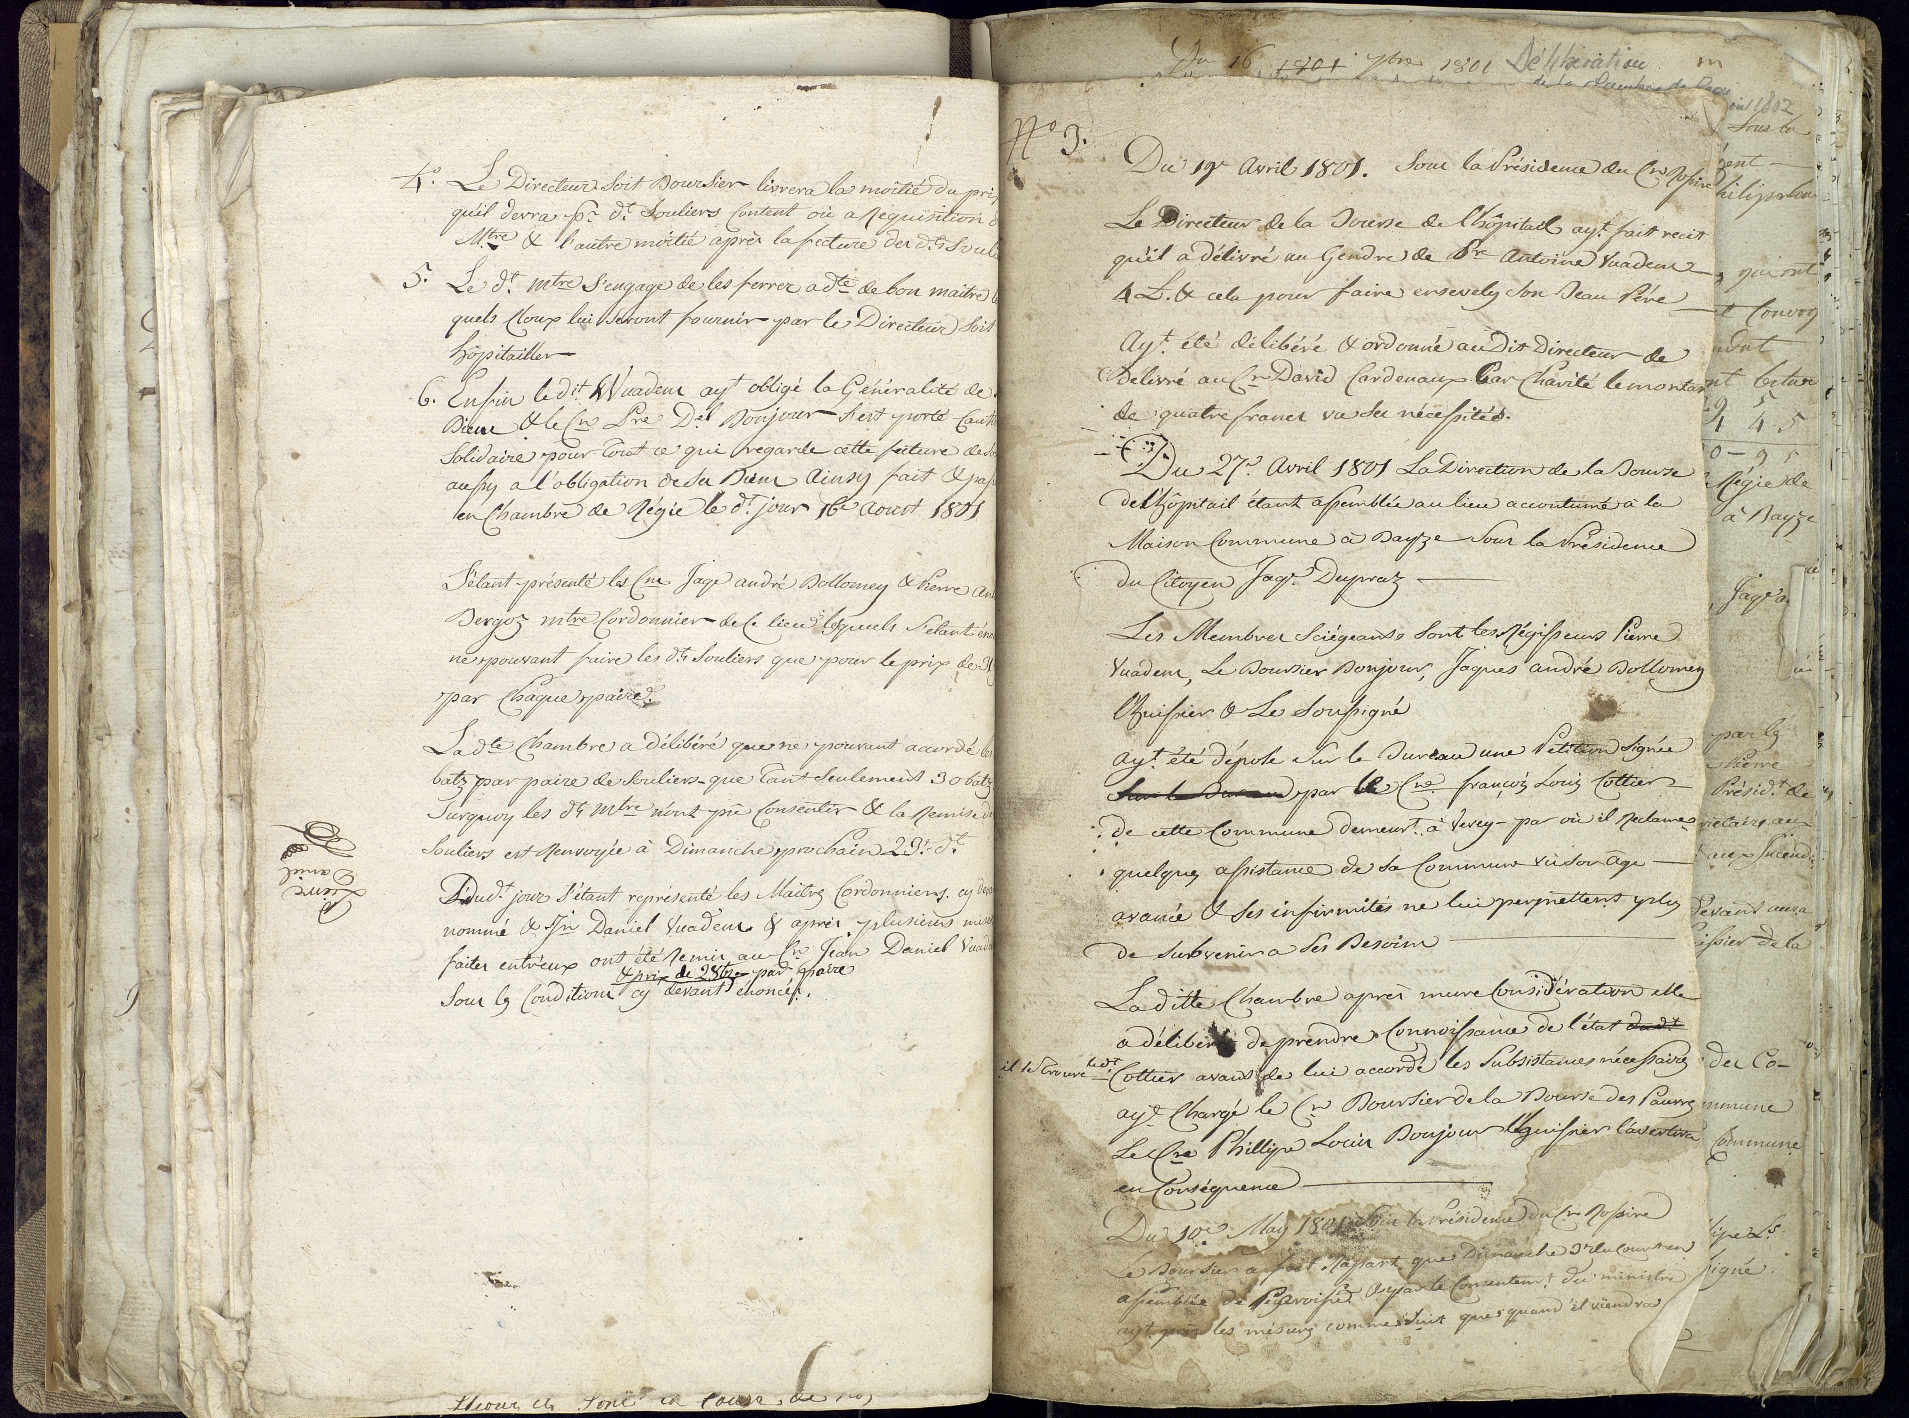 4.° Le Directeur Soit Boursier livrera la moitié du prix
qu'il devra pr. dt. Souliers Content où a Réquisition
Mtre & l'autre moitié après la facture des dts Soul
5. Le dt. mtre S'engage de les ferrer a dte de bon maitre
quels Cloux lui seront fournir par le Directeur Soit
hôpitailler
6. Enfin le dit Vuadens ayt obligé la Généralité de
Biens & le Cne Pre Dl Bonjour S'est porté Caut
Solidaire pour Tout ce qui regarde cette facture de S
aussy a l'obligation de Ses Biens Ainsy fait & pas
en Chambre de Régie le dt. jour 16e Aoust 1801
S'étant présenté les Cne Jaqe andré Bollomey & Pierre An
Bergoz mtre Cordonnier de Ce lieu lesquels S'étant éno
ne pouvant faire les dts Souliers que pour le prix de 3
par Chaque paire.
La dte Chambre a délibéré que ne pouvant accordé
batz par paire de Souliers que Tant Seulement 30 batz
Surquoy les dts Mtre n'ont pû Consentir & la Remise d
Souliers est Renvoyée à Dimanche prochain 23e dt
Dudt jour S'étant représenté les Maitres Cordonniers cy dev
nommé & Jn Daniel Vuadens & après plusieurs mises
faites entr'eux ont été Remis au Cne Jean Daniel Vuad
& prix de 28 btz par paire
Sous les Conditions cy devant énoncées.
Pierre
Daniel
Du 16 1801 7bre 1801 Délibération
de la Chambre de
1802
N° 3.
Du 19e Avril 1801. Sous la Présidence du Cne Rossire
Le Directeur de la Bourse de l'hôpital ayt. fait recit
qu'il a délivré au Gendre de Pre Antoine Vuadens
4 L. & cela pour faire ensevely Son Beau Père
Ayt. été délibéré & ordonné au Dit Directeur de
Delivré au Cne David Cardenaux par Charité le montan
de quatre francs vu Ses nécessités.
Du 27e Avril 1801 La Direction de la Bourse
de l'hôpitail étant assemblée au lieu accoutumé a la
Maison Commune à Bayze Sous la Présidence
du Citoyen Jaqs Dupraz
Les Membres Sciégeants Sont les Régisseurs Pierre
Vuadens, Le Boursier Bonjour, Jaques andré Bollomey
l'huissier & Le Soussigné
ayt. été déposé Sur le Bureau une Petition Signée
Sur le Bureau par le Cne. françois Louis Cottier
de cette Commune demeurt. à Vevey par où il Reclame
quelques assistance de Sa Commune vu Son âge
avancé & Ses infirmités ne lui permettens plus
de Subvenir a Ses Besoins
La ditte Chambre après mure Considération elle
a délibéré de prendre Connoissance de l'état dudt
il se trouve ledt.
Cottier avans de lui accordé les Subsistances nécessaires
ayt Chargé le Cne Boursier de la Bourse des Pauvres
Le Cne Phillipe Louis Bonjour l'huissier l'avertira
en Conséquence
Du 10e May 1801 Sous la Présidence du Cne Rossire
Le Boursier a fait Raport que Dimanche 3e du Courant en
assemblée de Paroisse & par le Consentemt du ministre
ayt pris les mésures comme Suit que quand il viendra
Sous la
qui ont
Convoq
Régie de
à Bayze
Jaqe a
par le
Pierre
Présidt. de
huissier de la
des Co-
ommune
Commune
lipe Ls
signé